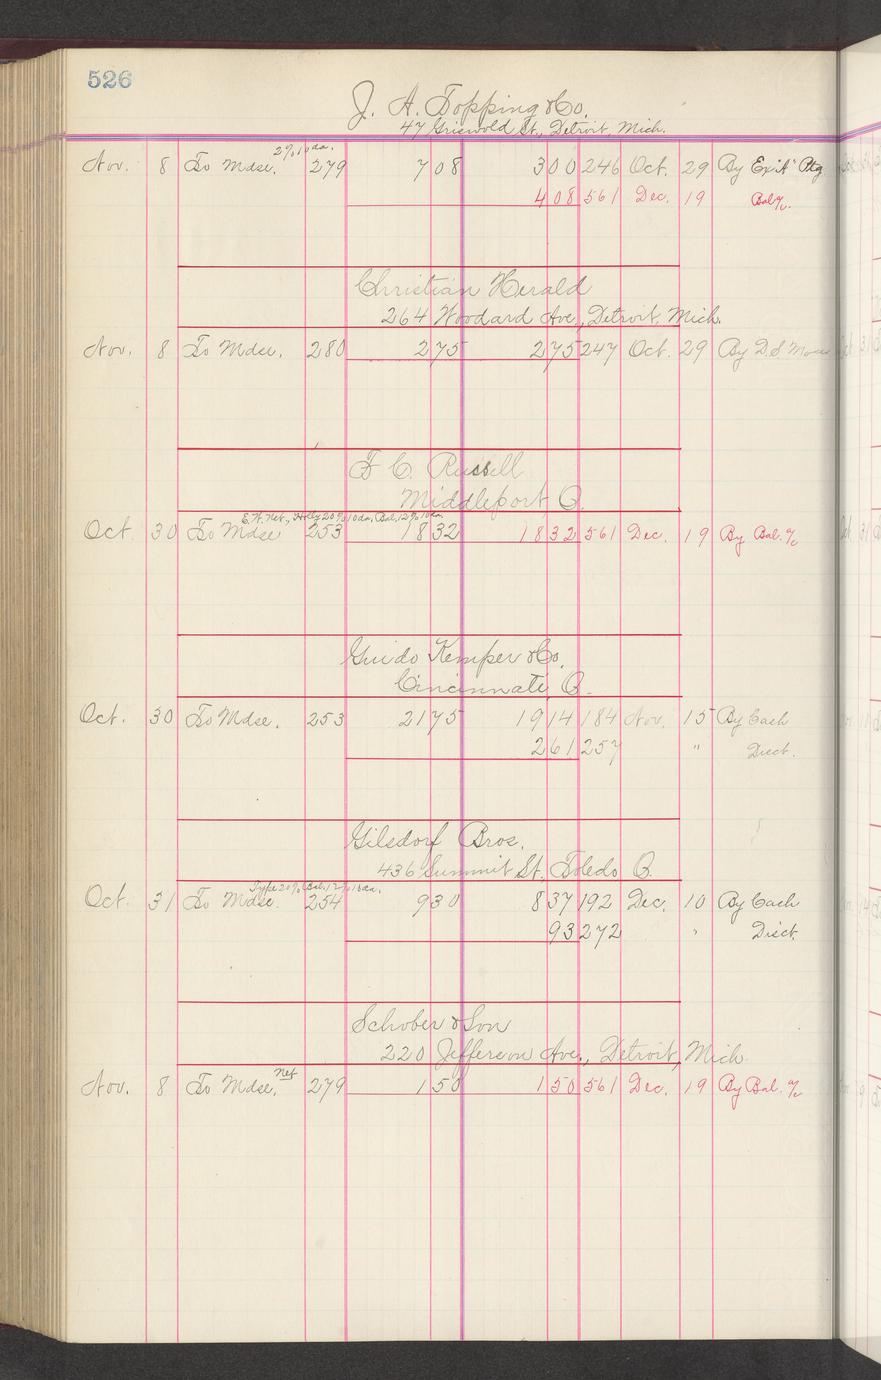 526
J. A. Topping & Co.
47 Griswold St., Detroit, Mich.
2% 10 da.
Nov. 8 To Mdse. 279 7 08 3 00 246 Oct. 29 By Exit Ptg
4 08 561 Dec. 19 Bal a/c.
Christian Herald
264 Woodard Ave., Detroit, Mich.
Nov. 8 To Mdse. 280 2 75 2 75 247 Oct. 29 By D. S. Mdse
F C. Russell
Middleport O.
E.H. Net., Holly 20% 10 da, Bal, 2% 10 da
Oct 30 To Mdse 253 18 32 18 32 561 Dec. 19 By Bal. a/c
Guido Kemper & Co.
Cincinnati, O.
Oct. 30 To Mdse. 253 21 75 19 14 184 Nov. 15 By Cash
2 61 257 " Disct.
Gilsdorf Bros.
436 Summit St. Toledo O.
Type 20% Bal, 2% 10 da.
Oct. 31 To Mdse. 254 9 30 8 37 192 Dec. 10 By Cash
93 272 " Disct.
Schober & Son
220 Jefferson Ave., Detroit, Mich.
Net
Nov. 8 To Mdse. 279 1 50 1 50 561 Dec. 19 By Bal. a/c